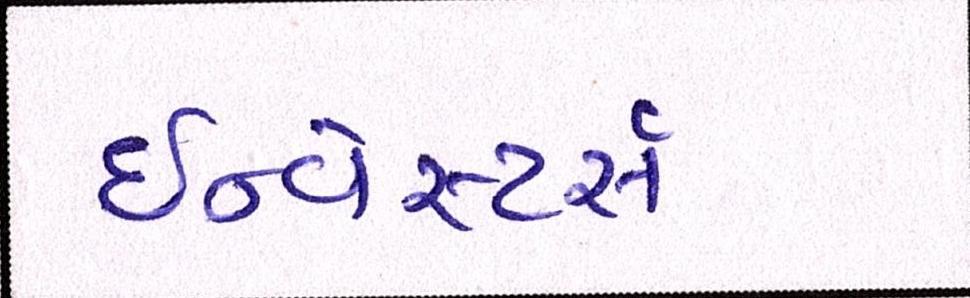 ઈન્વેસ્ટર્સ